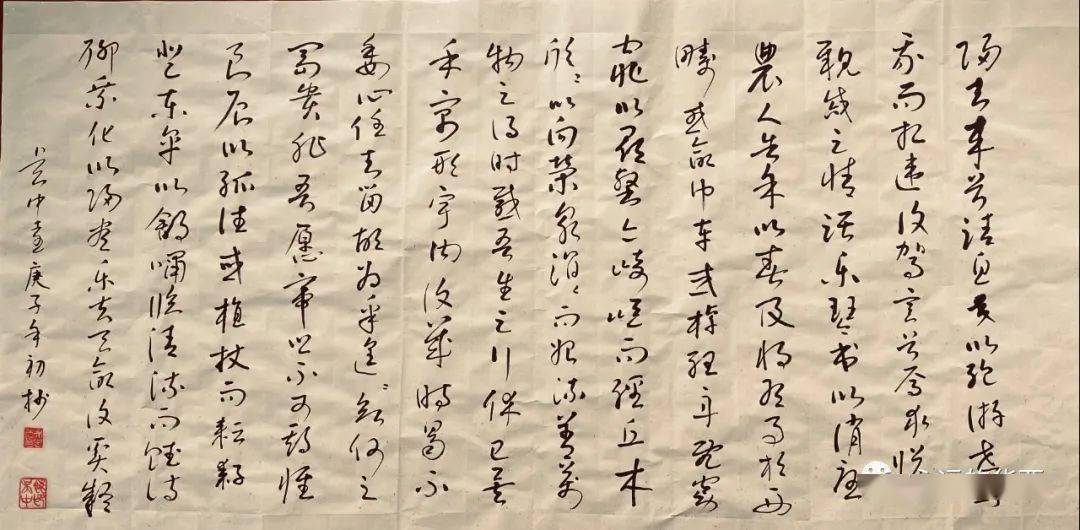 归去来兮请息交以绝游世与
我而相违复驾言兮焉求悦
親戚之情話乐琴書以消忧
農人告余以春及将有事於西
疇或命巾车或棹孤舟既窈
窕以尋壑亦崎岖而經丘木
欣欣以向榮泉涓涓而始流善萬
物之得时感吾生之行休已矣
乎寓形宇内復幾時曷不
委心任去留胡为乎遑遑欲何之
富贵非吾愿帝乡不可期怀
良辰以孤往或植杖而耘耔
登东皋以舒嘯临清流而赋诗
聊乘化以归尽乐夫天命復奚疑
庚子年初抄